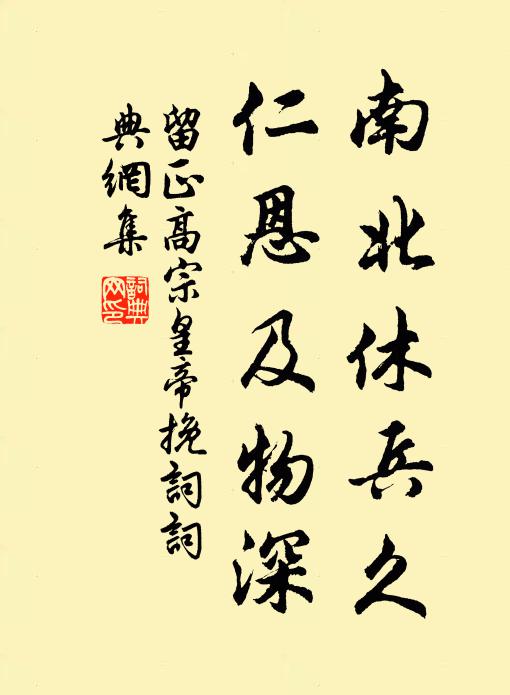 南北休兵久
仁恩及物深
留正高宗皇帝挽詞詞
典網集
詞典
网印